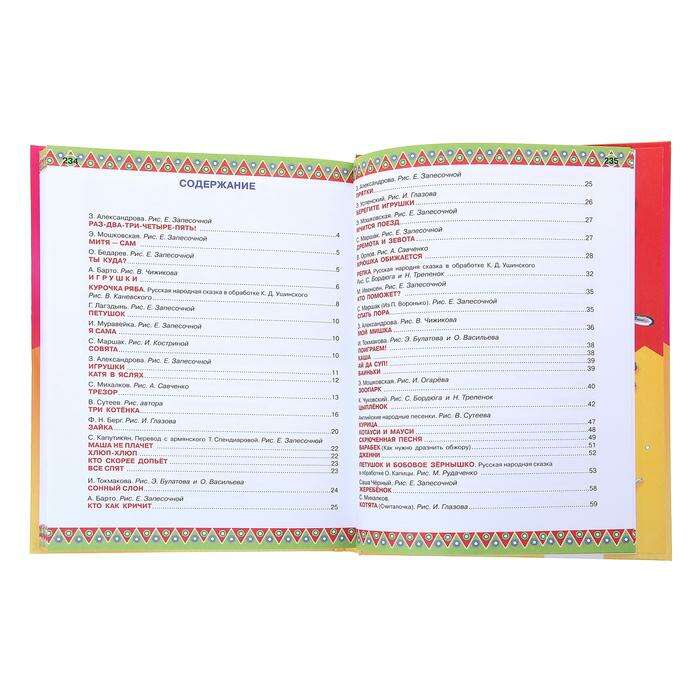 234
СОДЕРЖАНИЕ
З. Александрова. Рис. Е. Запесочной
РАЗ-ДВА-ТРИ-ЧЕТЫРЕ-ПЯТЬ! 4
Э. Мошковская. Рис. Е. Запесочной
МИТЯ — САМ 4
О. Бедарев. Рис. Е. Запесочной
ТЫ КУДА? 5
А. Барто. Рис. В. Чижикова
ИГРУШКИ 6
КУРОЧКА РЯБА. Русская народная сказка в обработке К. Д. Ушинского
Рис. В. Каневского 8
Г. Лагздынь. Рис. Е. Запесочной
ПЕТУШОК 10
И. Муравейка. Рис. Е. Запесочной
Я САМА 10
С. Маршак. Рис. И. Костриной
СОВЯТА 10
З. Александрова. Рис. Е. Запесочной
ИГРУШКИ 11
КАТЯ В ЯСЛЯХ 12
С. Михалков. Рис. А. Савченко
ТРЕЗОР 13
В. Сутеев. Рис. автора
ТРИ КОТЁНКА 16
Ф. Н. Берг. Рис. И. Глазова
ЗАЙКА 20
С. Капутикян. Перевод с армянского Т. Спендиаровой. Рис. Е. Запесочной
МАША НЕ ПЛАЧЕТ 22
ХЛЮП-ХЛЮП 22
КТО СКОРЕЕ ДОПЬЁТ 23
ВСЕ СПЯТ 23
И. Токмакова. Рис. Э. Булатова и О. Васильева
СОННЫЙ СЛОН 24
А. Барто. Рис. Е. Запесочной
КТО КАК КРИЧИТ 25
235
Александрова. Рис. Е. Запесочной
ПРЯТКИ 25
Успенский. Рис. И. Глазова
БЕРЕГИТЕ ИГРУШКИ 26
Мошковская. Рис. Е. Запесочной
МЧИТСЯ ПОЕЗД 27
С. Маршак. Рис. Е. Запесочной
ДРЕМОТА И ЗЕВОТА 27
В. Орлов. Рис. А. Савченко
ХРЮШКА ОБИЖАЕТСЯ 28
РЕПКА. Русская народная сказка в обработке К. Д. Ушинского
Рис. С. Бордюга и Н. Трепенок 32
М. Ивенсен. Рис. Е. Запесочной
КТО ПОМОЖЕТ? 35
С. Маршак (Из П. Воронько). Рис. Е. Запесочной
СПАТЬ ПОРА 35
З. Александрова. Рис. В. Чижикова
МОЙ МИШКА 36
И. Токмакова. Рис. Э. Булатова и О. Васильева
ПОИГРАЕМ! 38
КАША 38
АЙ ДА СУП! 39
БАИНЬКИ 39
Э. Мошковская. Рис. И. Огарёва
ЗООПАРК 40
К. Чуковский. Рис. С. Бордюга и Н. Трепенок
ЦЫПЛЁНОК 42
Английские народные песенки. Рис. В. Сутеева
КУРИЦА 47
КОТАУСИ И МАУСИ 48
СКРЮЧЕННАЯ ПЕСНЯ 49
БАРАБЕК (Как нужно дразнить обжору) 51
ДЖЕННИ 51
ПЕТУШОК И БОБОВОЕ ЗЁРНЫШКО. Русская народная сказка
в обработке О. Капицы. Рис. М. Рудаченко 53
Саша Чёрный. Рис. Е. Запесочной
ЖЕРЕБЁНОК 58
С. Михалков.
КОТЯТА (Считалочка). Рис. И. Глазова 59